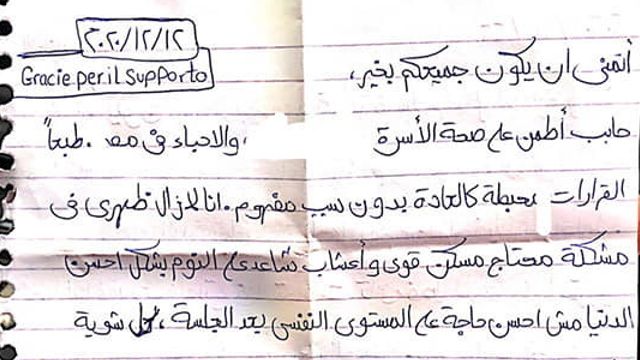 ٢٠٢٠/١٢/١٢
Gracie per il supporto
أتمنى ان يكون جميعكم بخير،
حابب أطمن على صحة الأسرة ، والاحباء فى مصر . طبعاً
القرارات محبطة كالعادة بدون سبب مفهوم . انا لازال ظهرى فى
مشكلة محتاج مسكن قوى و أعشاب تساعد على النوم بشكل احسن
الدنيا مش احسن حاجة على المستوى النفسى بعد الجلسة ، شوية